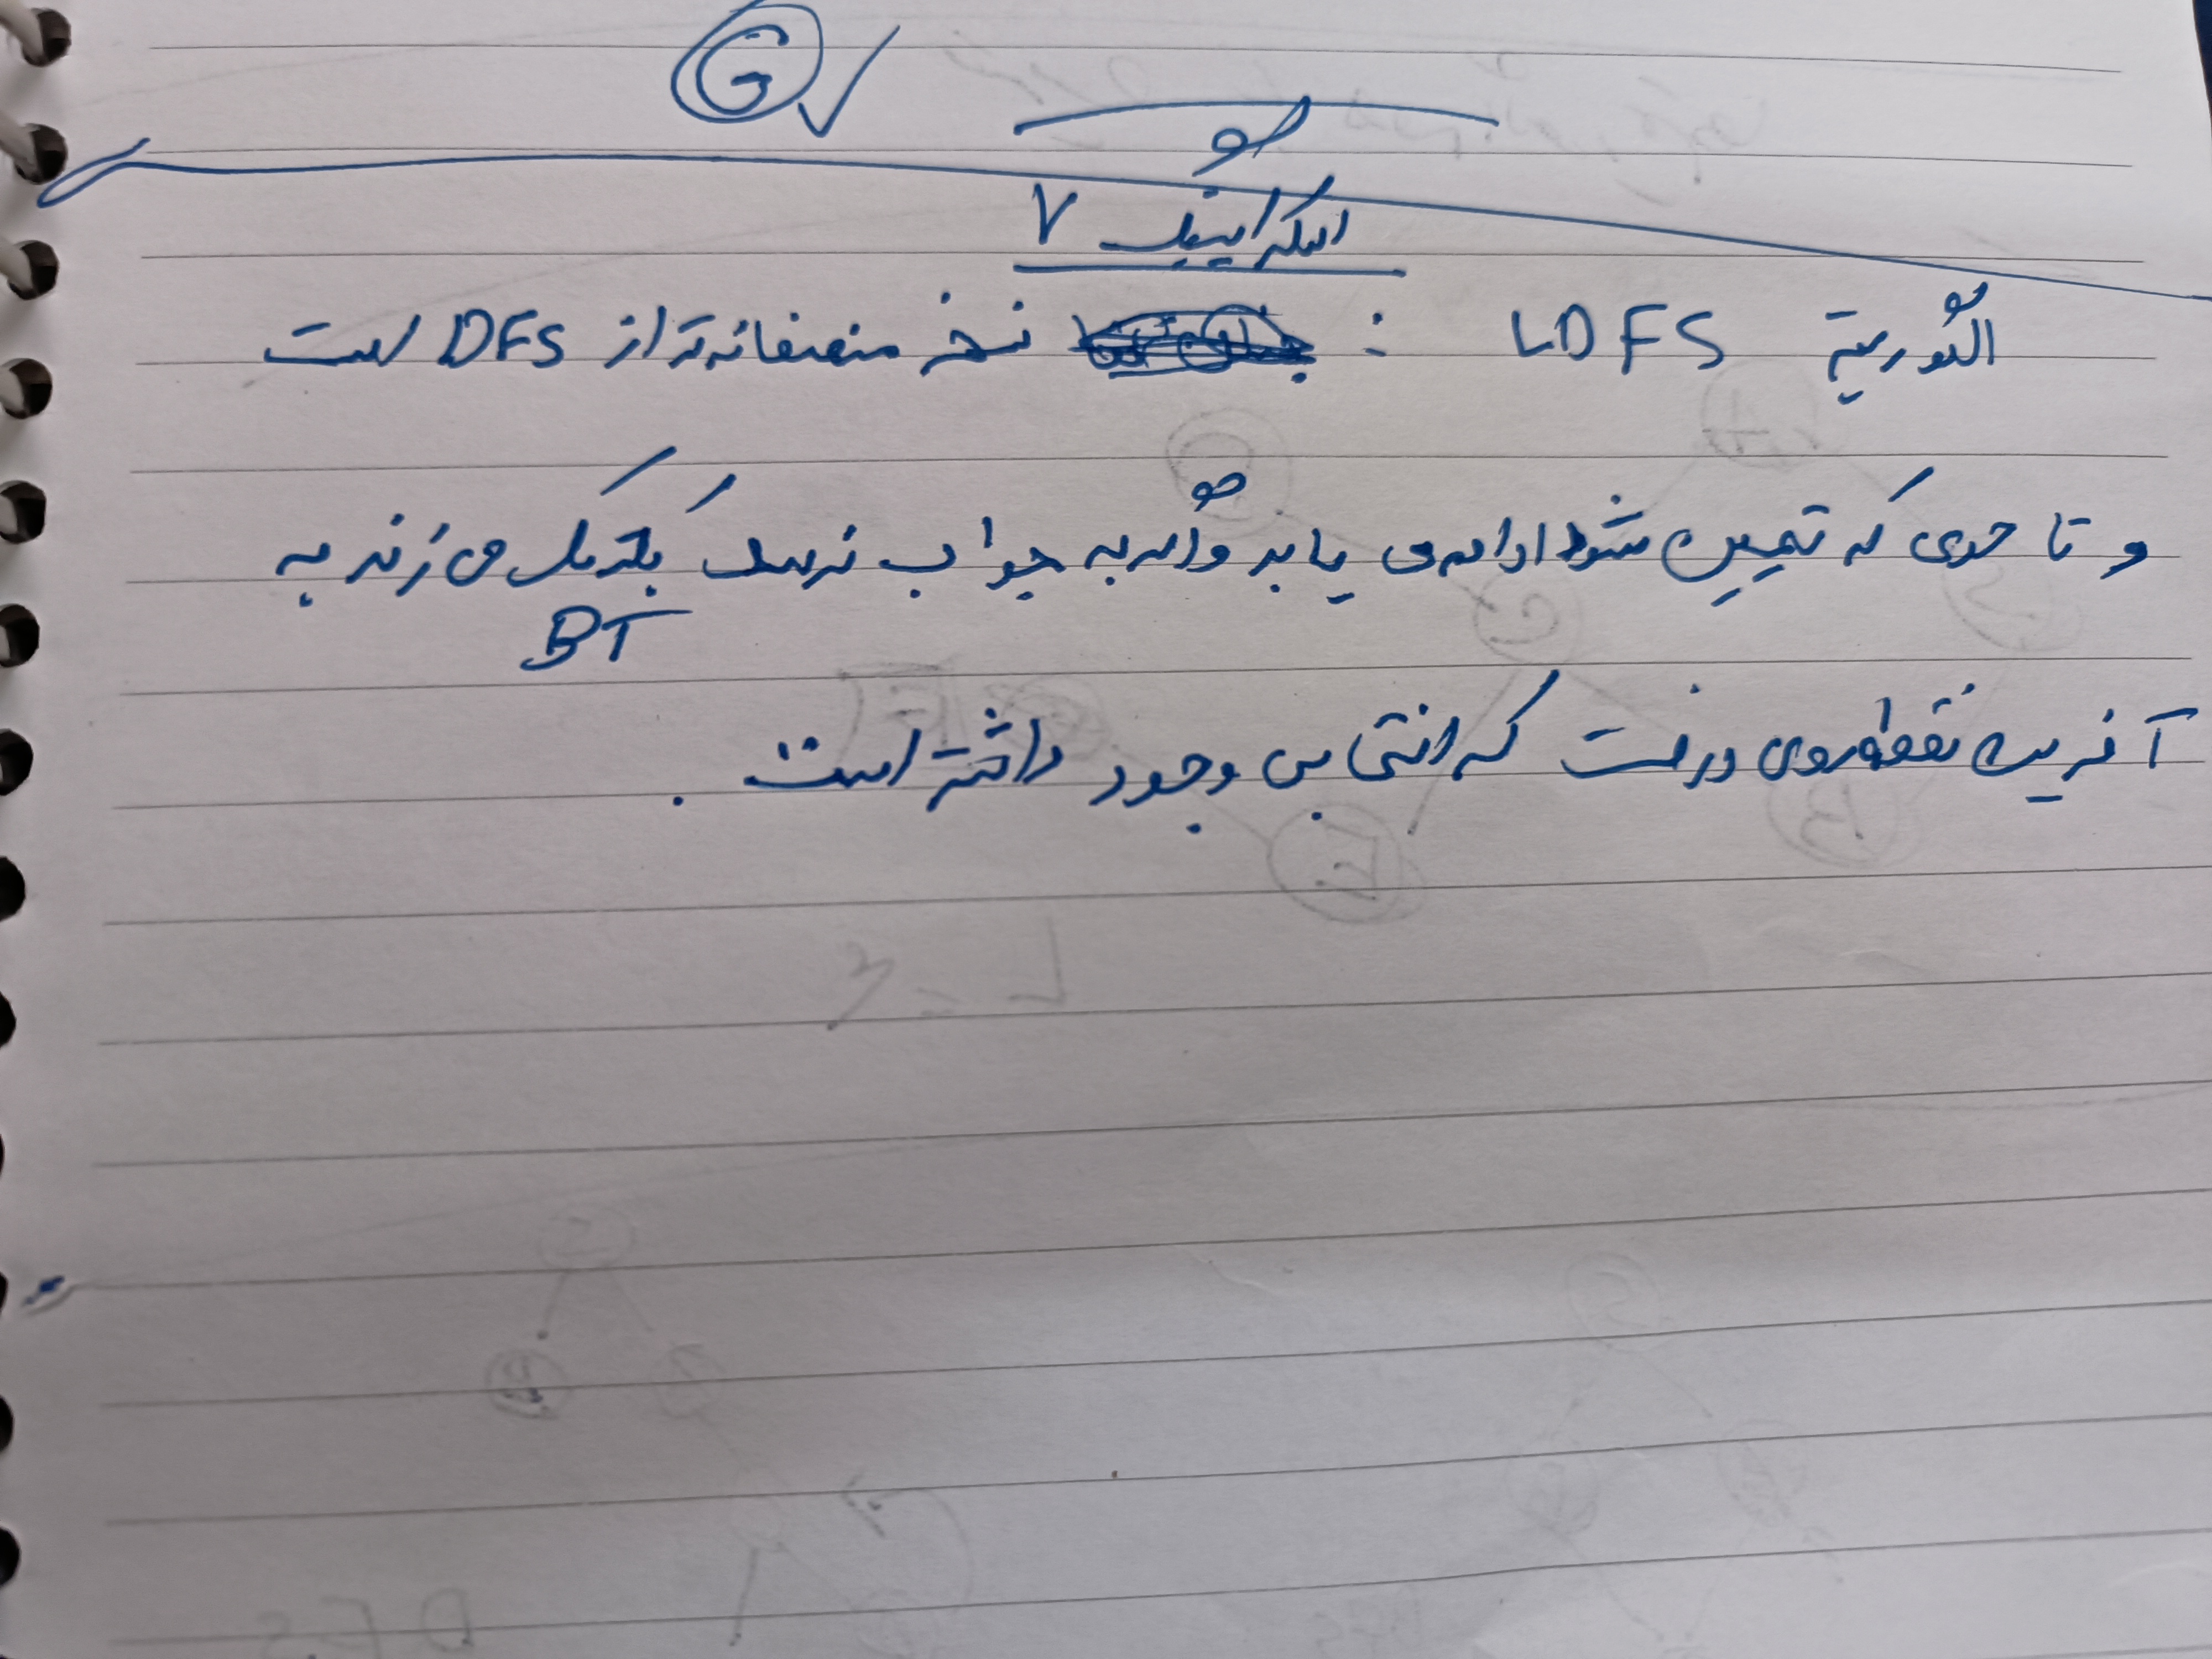 G
اسکرایپنگ ۷
الگوریتم LDFS : نسخه منصفانه‌تر از DFS است
و تا حدی که تعیین شود ادامه می یابد و اگر به جواب نرسد بک ترک می زند به
BT
آخرین نقطه روی درخت که انتخابی وجود داشته است .